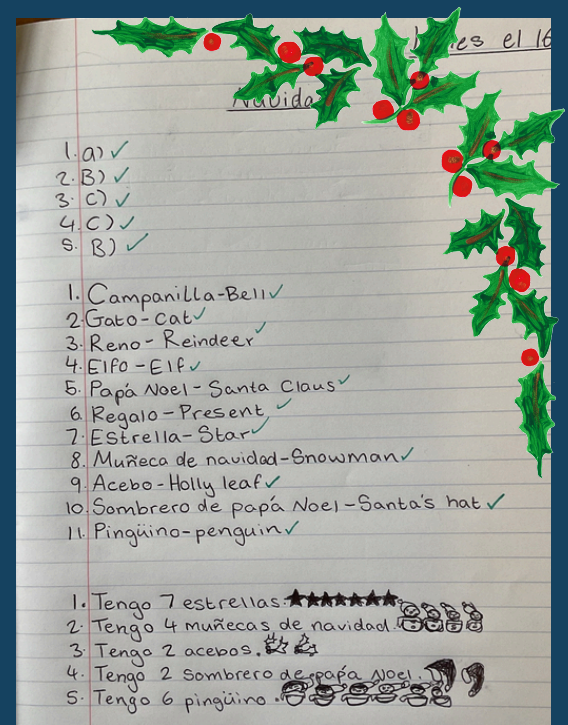 es el 16
Navida
1. a) ✓
2. B) ✓
3. C) ✓
4. C) ✓
5. B) ✓
1. Campanilla-Bell ✓
2. Gato-Cat ✓
3. Reno-Reindeer ✓
4. Elfo-Elf ✓
5. Papá Noel-Santa Claus ✓
6. Regalo-Present ✓
7. Estrella-Star ✓
8. Muñeca de navidad-Snowman ✓
9. Acebo-Holly leaf ✓
10. Sombrero de papá Noel-Santa's hat ✓
11. Pingüino-penguin ✓
1. Tengo 7 estrellas.
2. Tengo 4 muñecas de navidad.
3. Tengo 2 acebos.
4. Tengo 2 sombrero de papá Noel.
5. Tengo 6 pingüino.